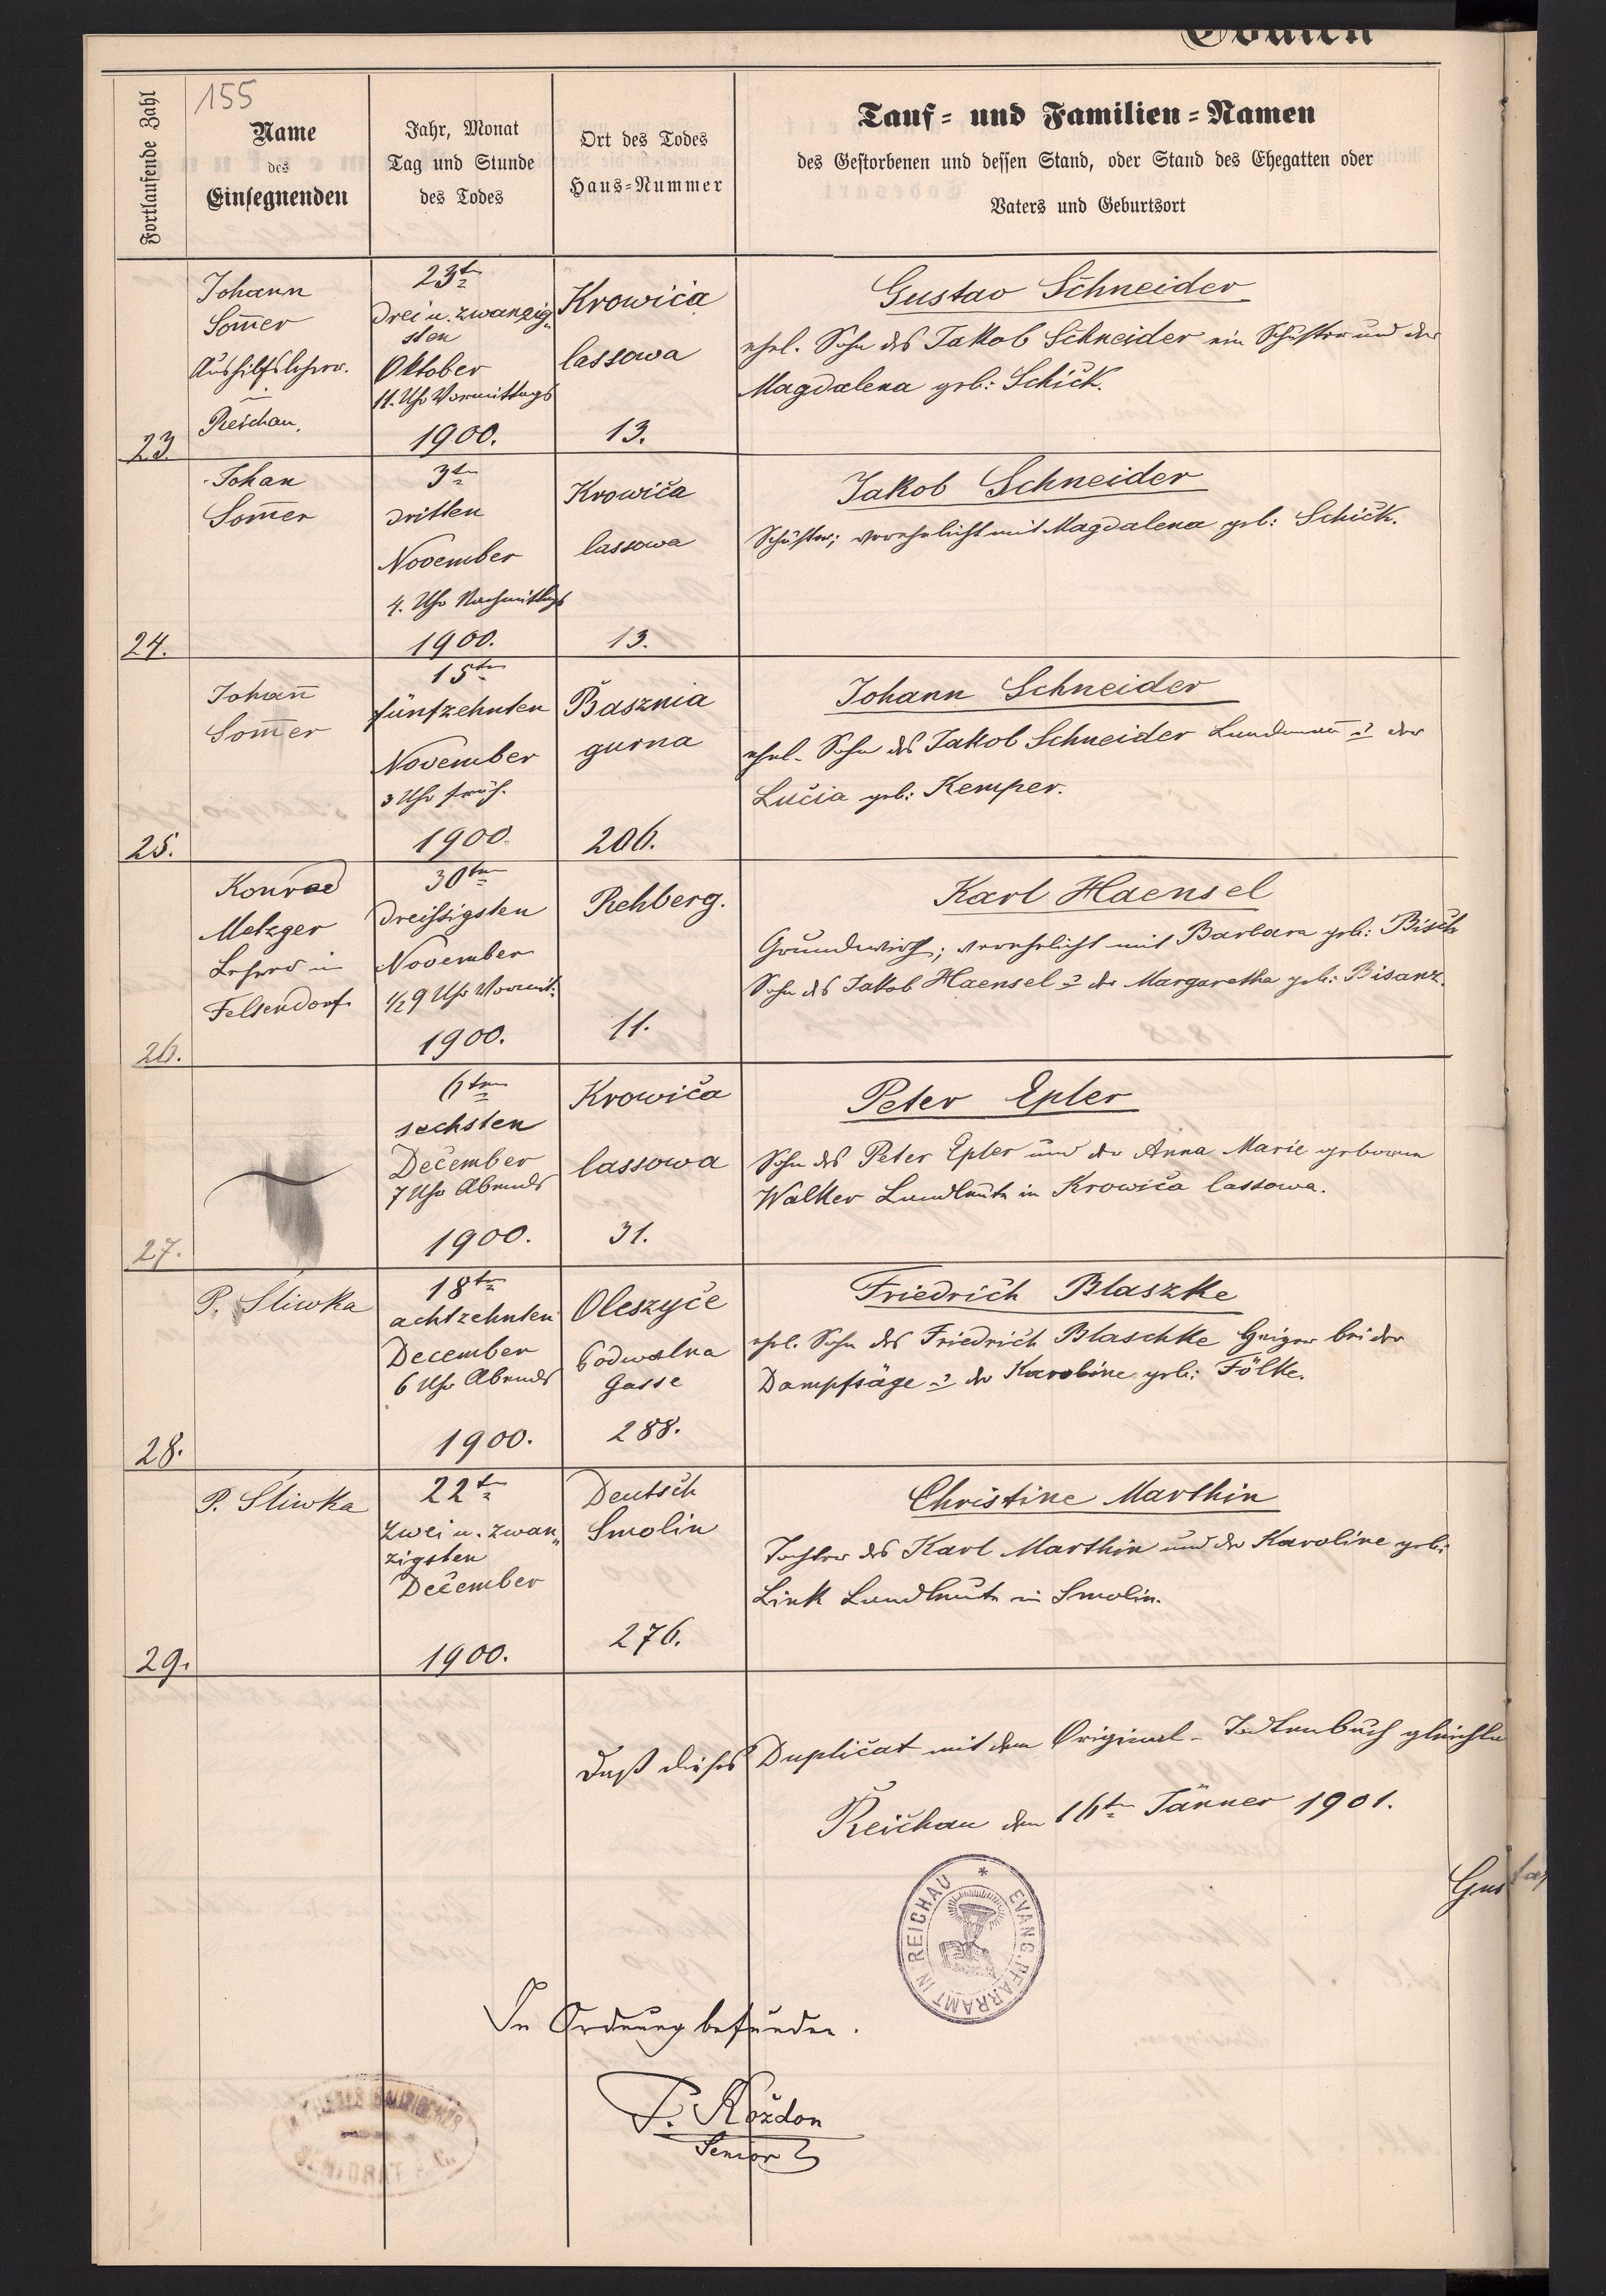 155
Fortlaufende Zahl
Name
des
Einsegnenden
Jahr, Monat
Tag und Stunde
des Todes
Ort des Todes
Haus-Nummer
Tauf- und Familien-Namen
des Gestorbenen und dessen Stand, oder Stand des Ehegatten oder
Vaters und Geburtsort
23.
Johann
Som̄er
Aushilfslehrer.
in
Reichau.
23tn
drei u. zwanzig„
sten
Oktober
11. Uhr Vormittags
1900.
Krowica
lassowa
13.
Gustav Schneider
ehel. Sohn des Jakob Schneider ein Schuster und der
Magdalena geb: Schick.
24.
Johan
Som̄er
3tn
dritten
November
4. Uhr Nachmittags
1900.
Krowica
lassowa
13.
Jakob Schneider
Schuster; verehelicht mit Magdalena geb: Schick.
25.
Johan̄
Som̄er
15ten
fünfzehnten
November
3 Uhr früh.
1900.
Basznia
gurna
206.
Johann Schneider
ehel. Sohn des Jakob Schneider Landman̄ u der
Lucia geb: Kemper.
26.
Konrad
Metzger
Lehrer in
Felsendorf.
30ten
dreißigsten
November
1/2 9 Uhr Vormit:
1900.
Rehberg.
11.
Karl Haensel
Grundwirth; verehelicht mit Barbara geb: Bisch
Sohn des Jakob Haensel u der Margaretha geb: Bisanz.
27.
6ten
sechsten
December
7 Uhr Abends
1900.
Krowica
lassowa
31.
Peter Epler
Sohn des Peter Epler und der Anna Marie geborene
Walker Landleute in Krowica lassowa.
28.
P. Sliwka
18ten
achtzehnten
December
6 Uhr Abends
1900.
Oleszyce
Podwalna
Gasse
288.
Friedrich Blaszke
ehel. Sohn des Friedrich Blaschke Heizer bei der
Dampfsäge u der Karoline geb: Fölke.
29.
P. Sliwka
22tn
zwei u. zwan„
zigsten
December
1900.
Deutsch
Smolin
276.
Christine Marthin
Tochter des Karl Marthin und der Karoline geb:
Link Landleute in Smolin.
Daß dieses Duplicat mit dem Original-Todtenbuch gleichla
Reichau den 16tn Jänner 1901.
Gus
EVANG. PFARRAMT IN REICHAU
In Ordnung befunden.
P. Kozdon
Senior